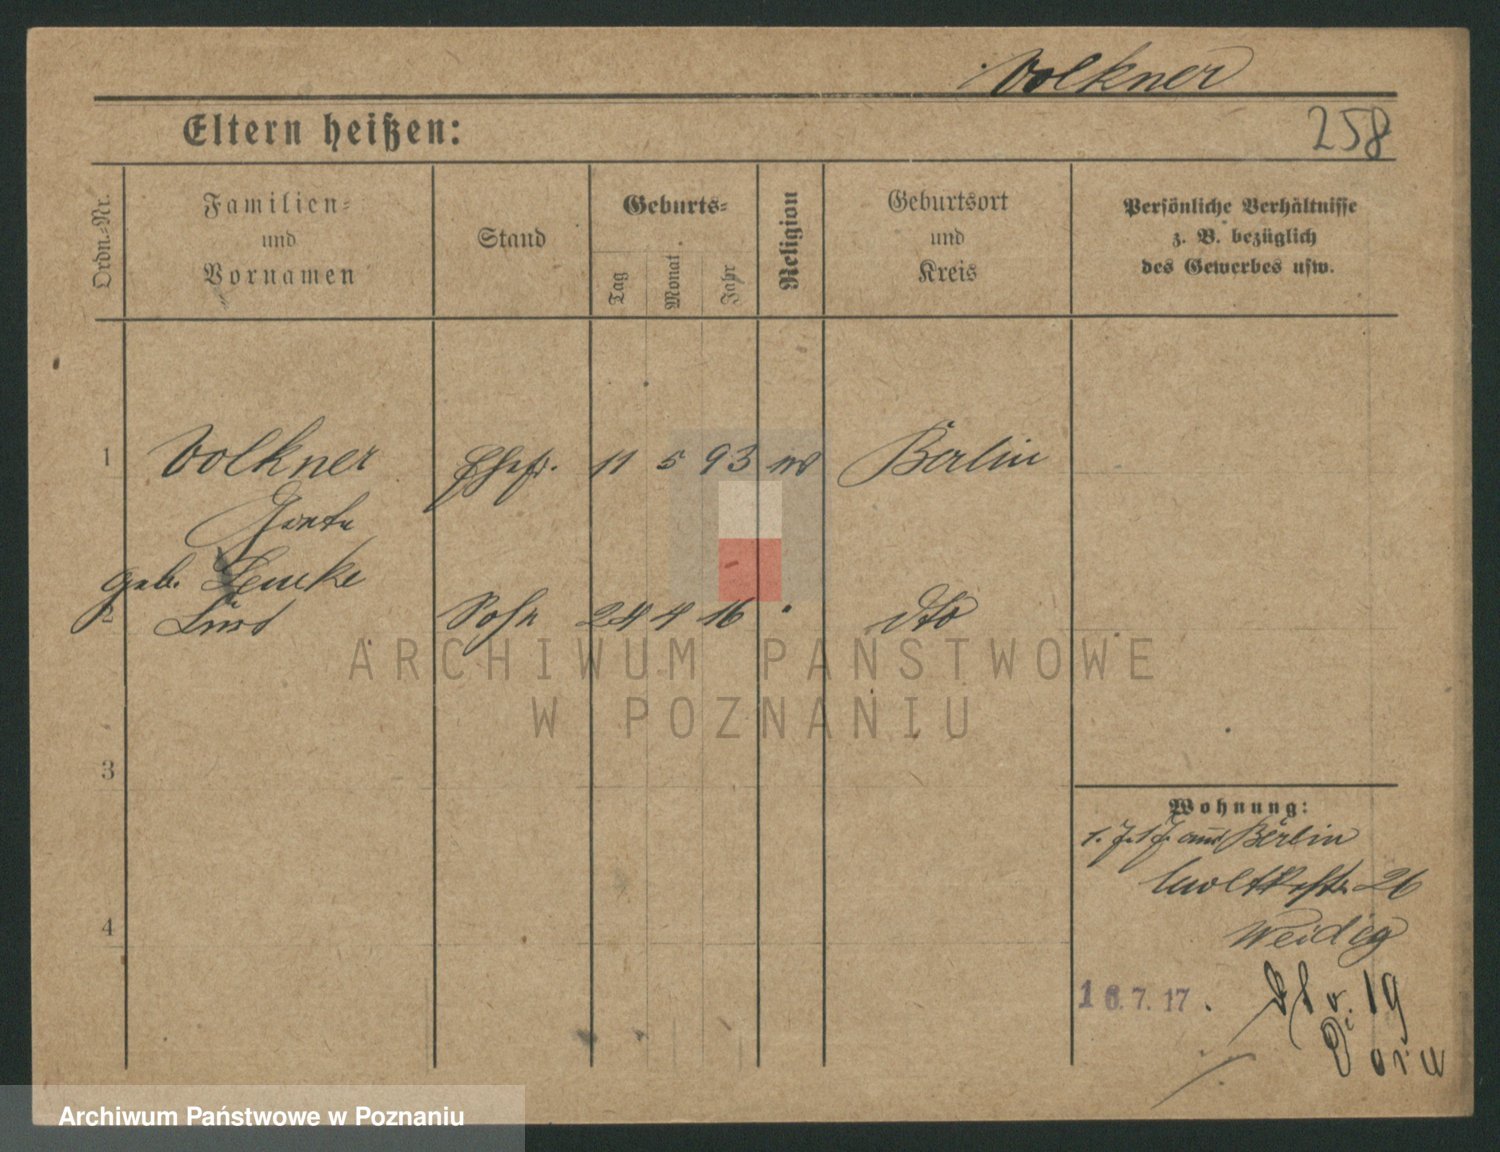 Volkner
Eltern heißen:
258
Ordn.-Nr.
Familien-
und
Vornamen
Stand
Geburts-
Tag
Monat
Jahr
Religion
Geburtsort
und
Kreis
Persönliche Verhältnisse
z. B. bezüglich
des Gewerbes usw.
1 Volkner Ehefr. 11 5 93 Berlin
geb. Lemke
2 Sohn 24 4 16 dto
3
4
Wohnung:
1. 7. 17. aus Berlin
Moltkestr. 26
Weidig
16.7.17.
19
ARCHIWUM PAŃSTWOWE
W POZNANIU
Archiwum Państwowe w Poznaniu